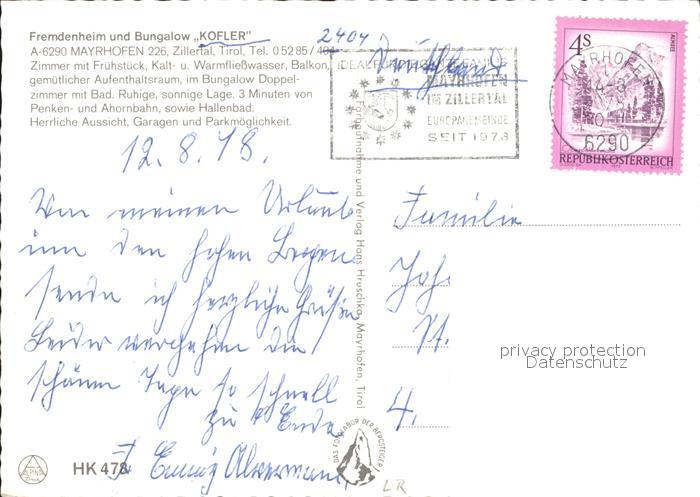 Fremdenheim und Bungalow „KOFLER"
A-6290 MAYRHOFEN 226, Zillertal, Tirol, Tel. 0 52 85 / 404
Zimmer mit Frühstück, Kalt- u. Warmfließwasser, Balkon,
gemütlicher Aufenthaltsraum, im Bungalow Doppel-
zimmer mit Bad. Ruhige, sonnige Lage. 3 Minuten von
Penken- und Ahornbahn, sowie Hallenbad.
Herrliche Aussicht, Garagen und Parkmöglichkeit.
2404
MAYRHOFEN
IM ZILLERTAL
EUROPAGEMEINDE
SEIT 1973
4 S
ALMSEE
MAYRHOFEN
6290
REPUBLIK ÖSTERREICH
12. 8. 78.
Von meinen Urlaub
inn den hohen Bergen
sende ich herzliche Grüße
Leider vergehen die
schönen Tage so schnell
zu Ende
Farbaufnahme und Verlag Hans Hruschka, Mayrhofen, Tirol
Familie
Joh.
St.
4.
privacy protection
Datenschutz
DAS FOTOLABOR DER BERGSTEIGER
HK 478
LR